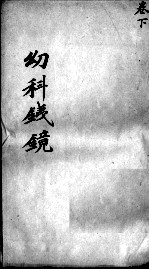 卷下
幼科銕鏡